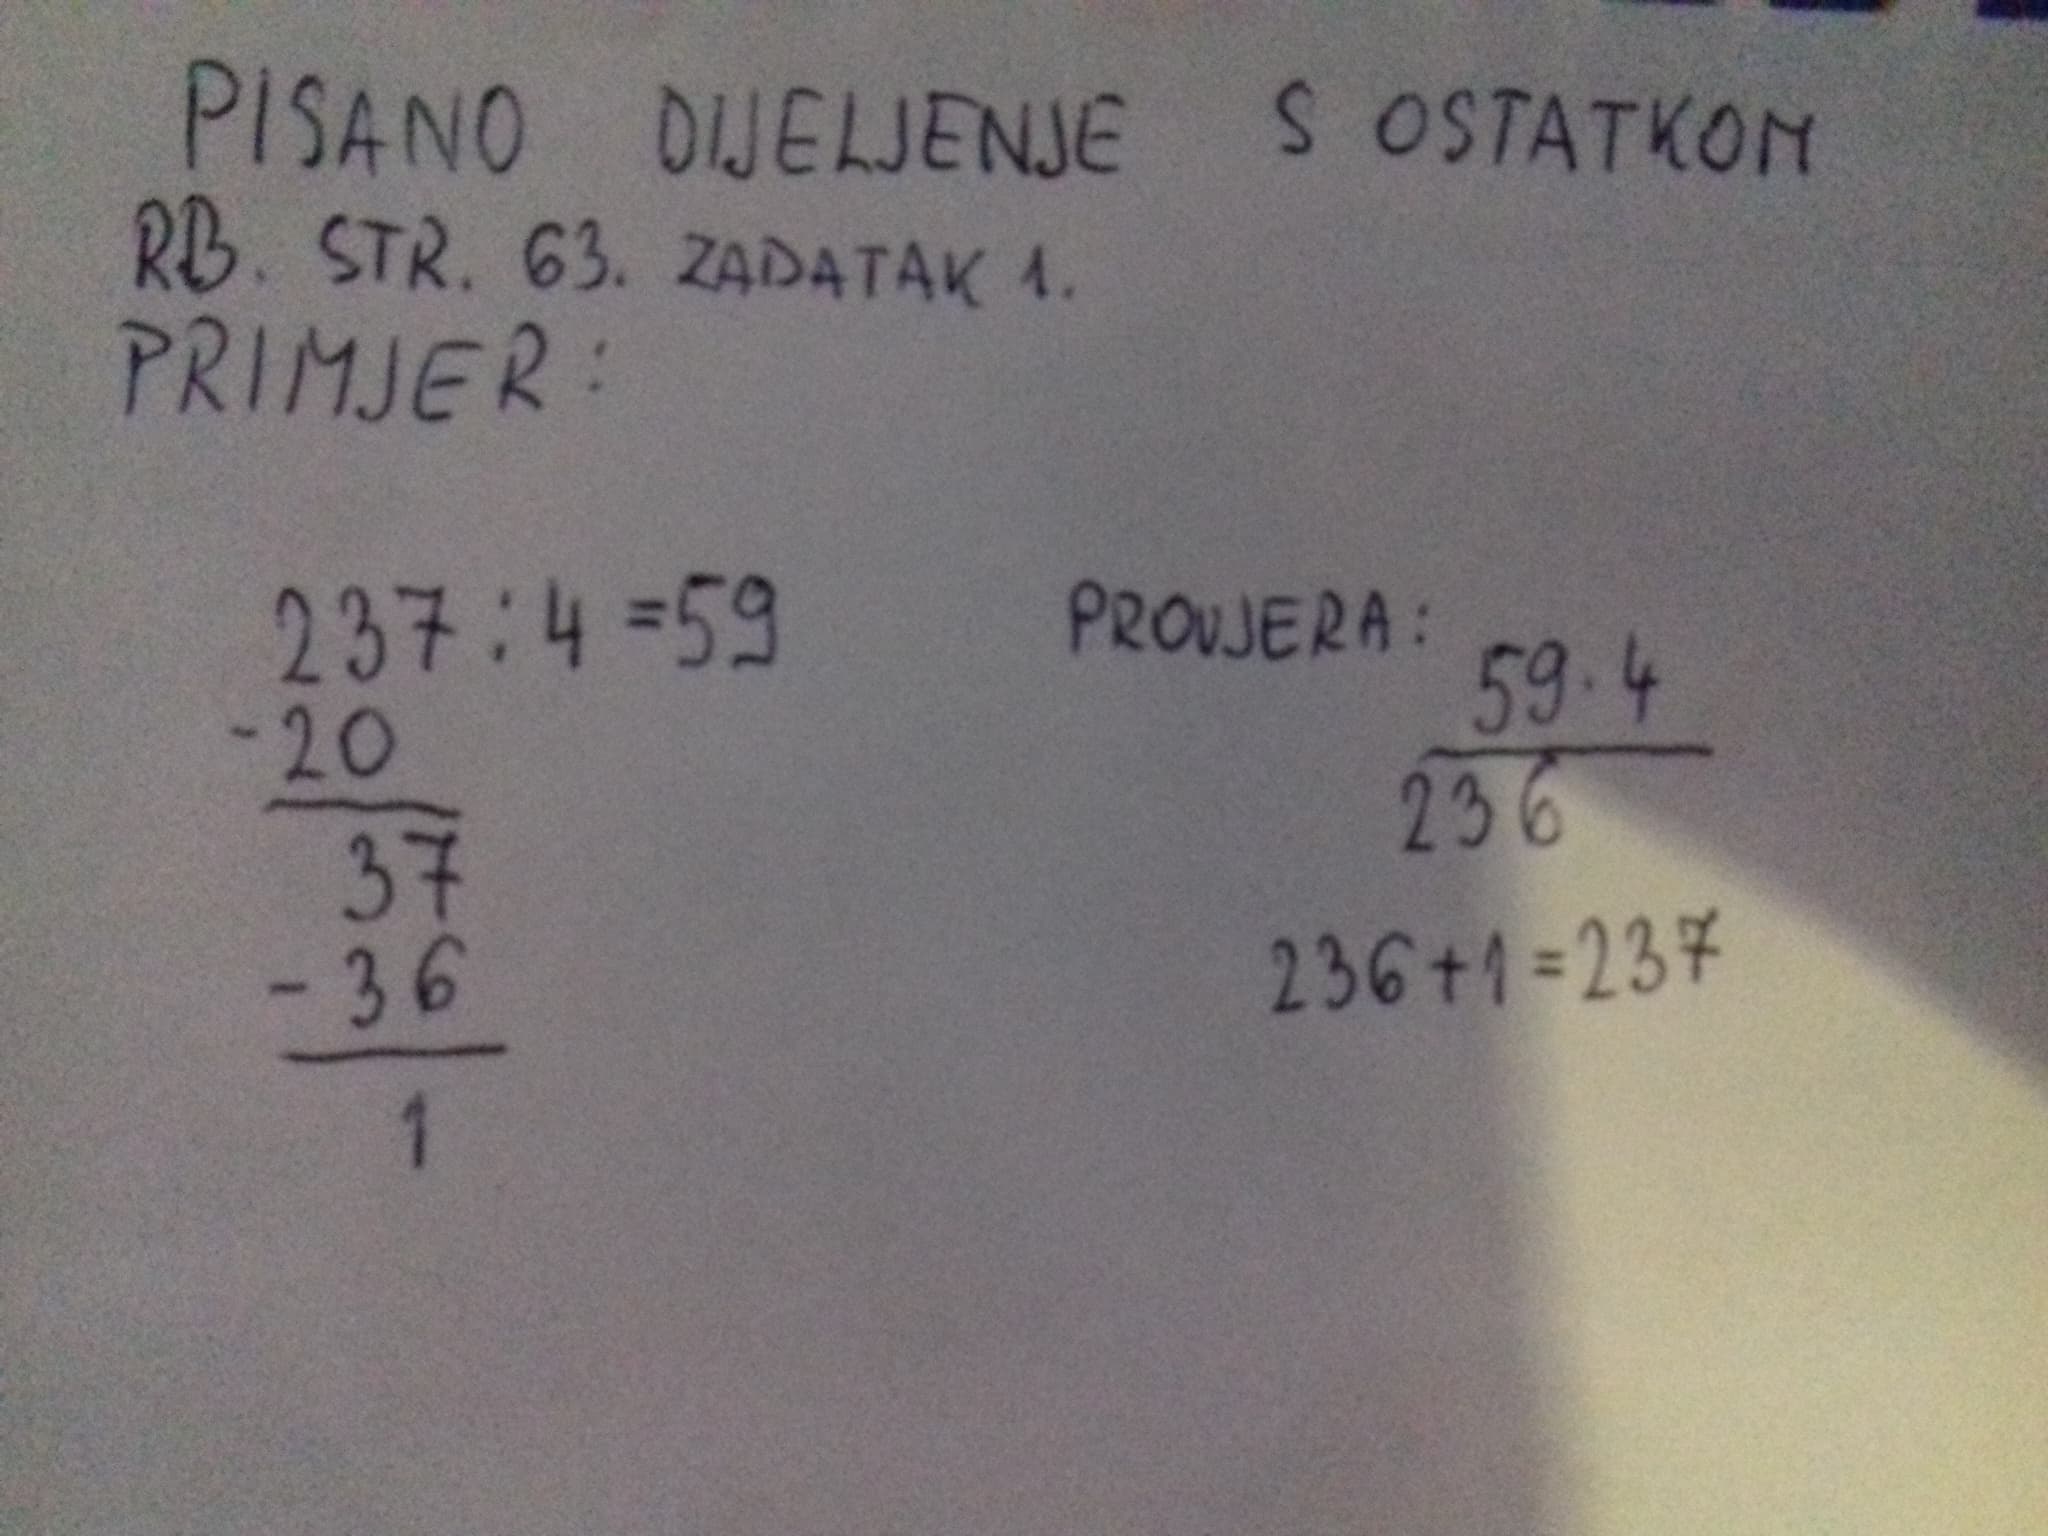 PISANO DIJELJENJE S OSTATKOM
RB. STR. 63. ZADATAK 1.
PRIMJER:
237:4=59
-20
37
-36
1
PROVJERA:
59·4
236
236+1=237